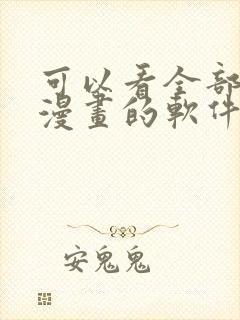 可以看全部
漫畫的軟件
安鬼鬼